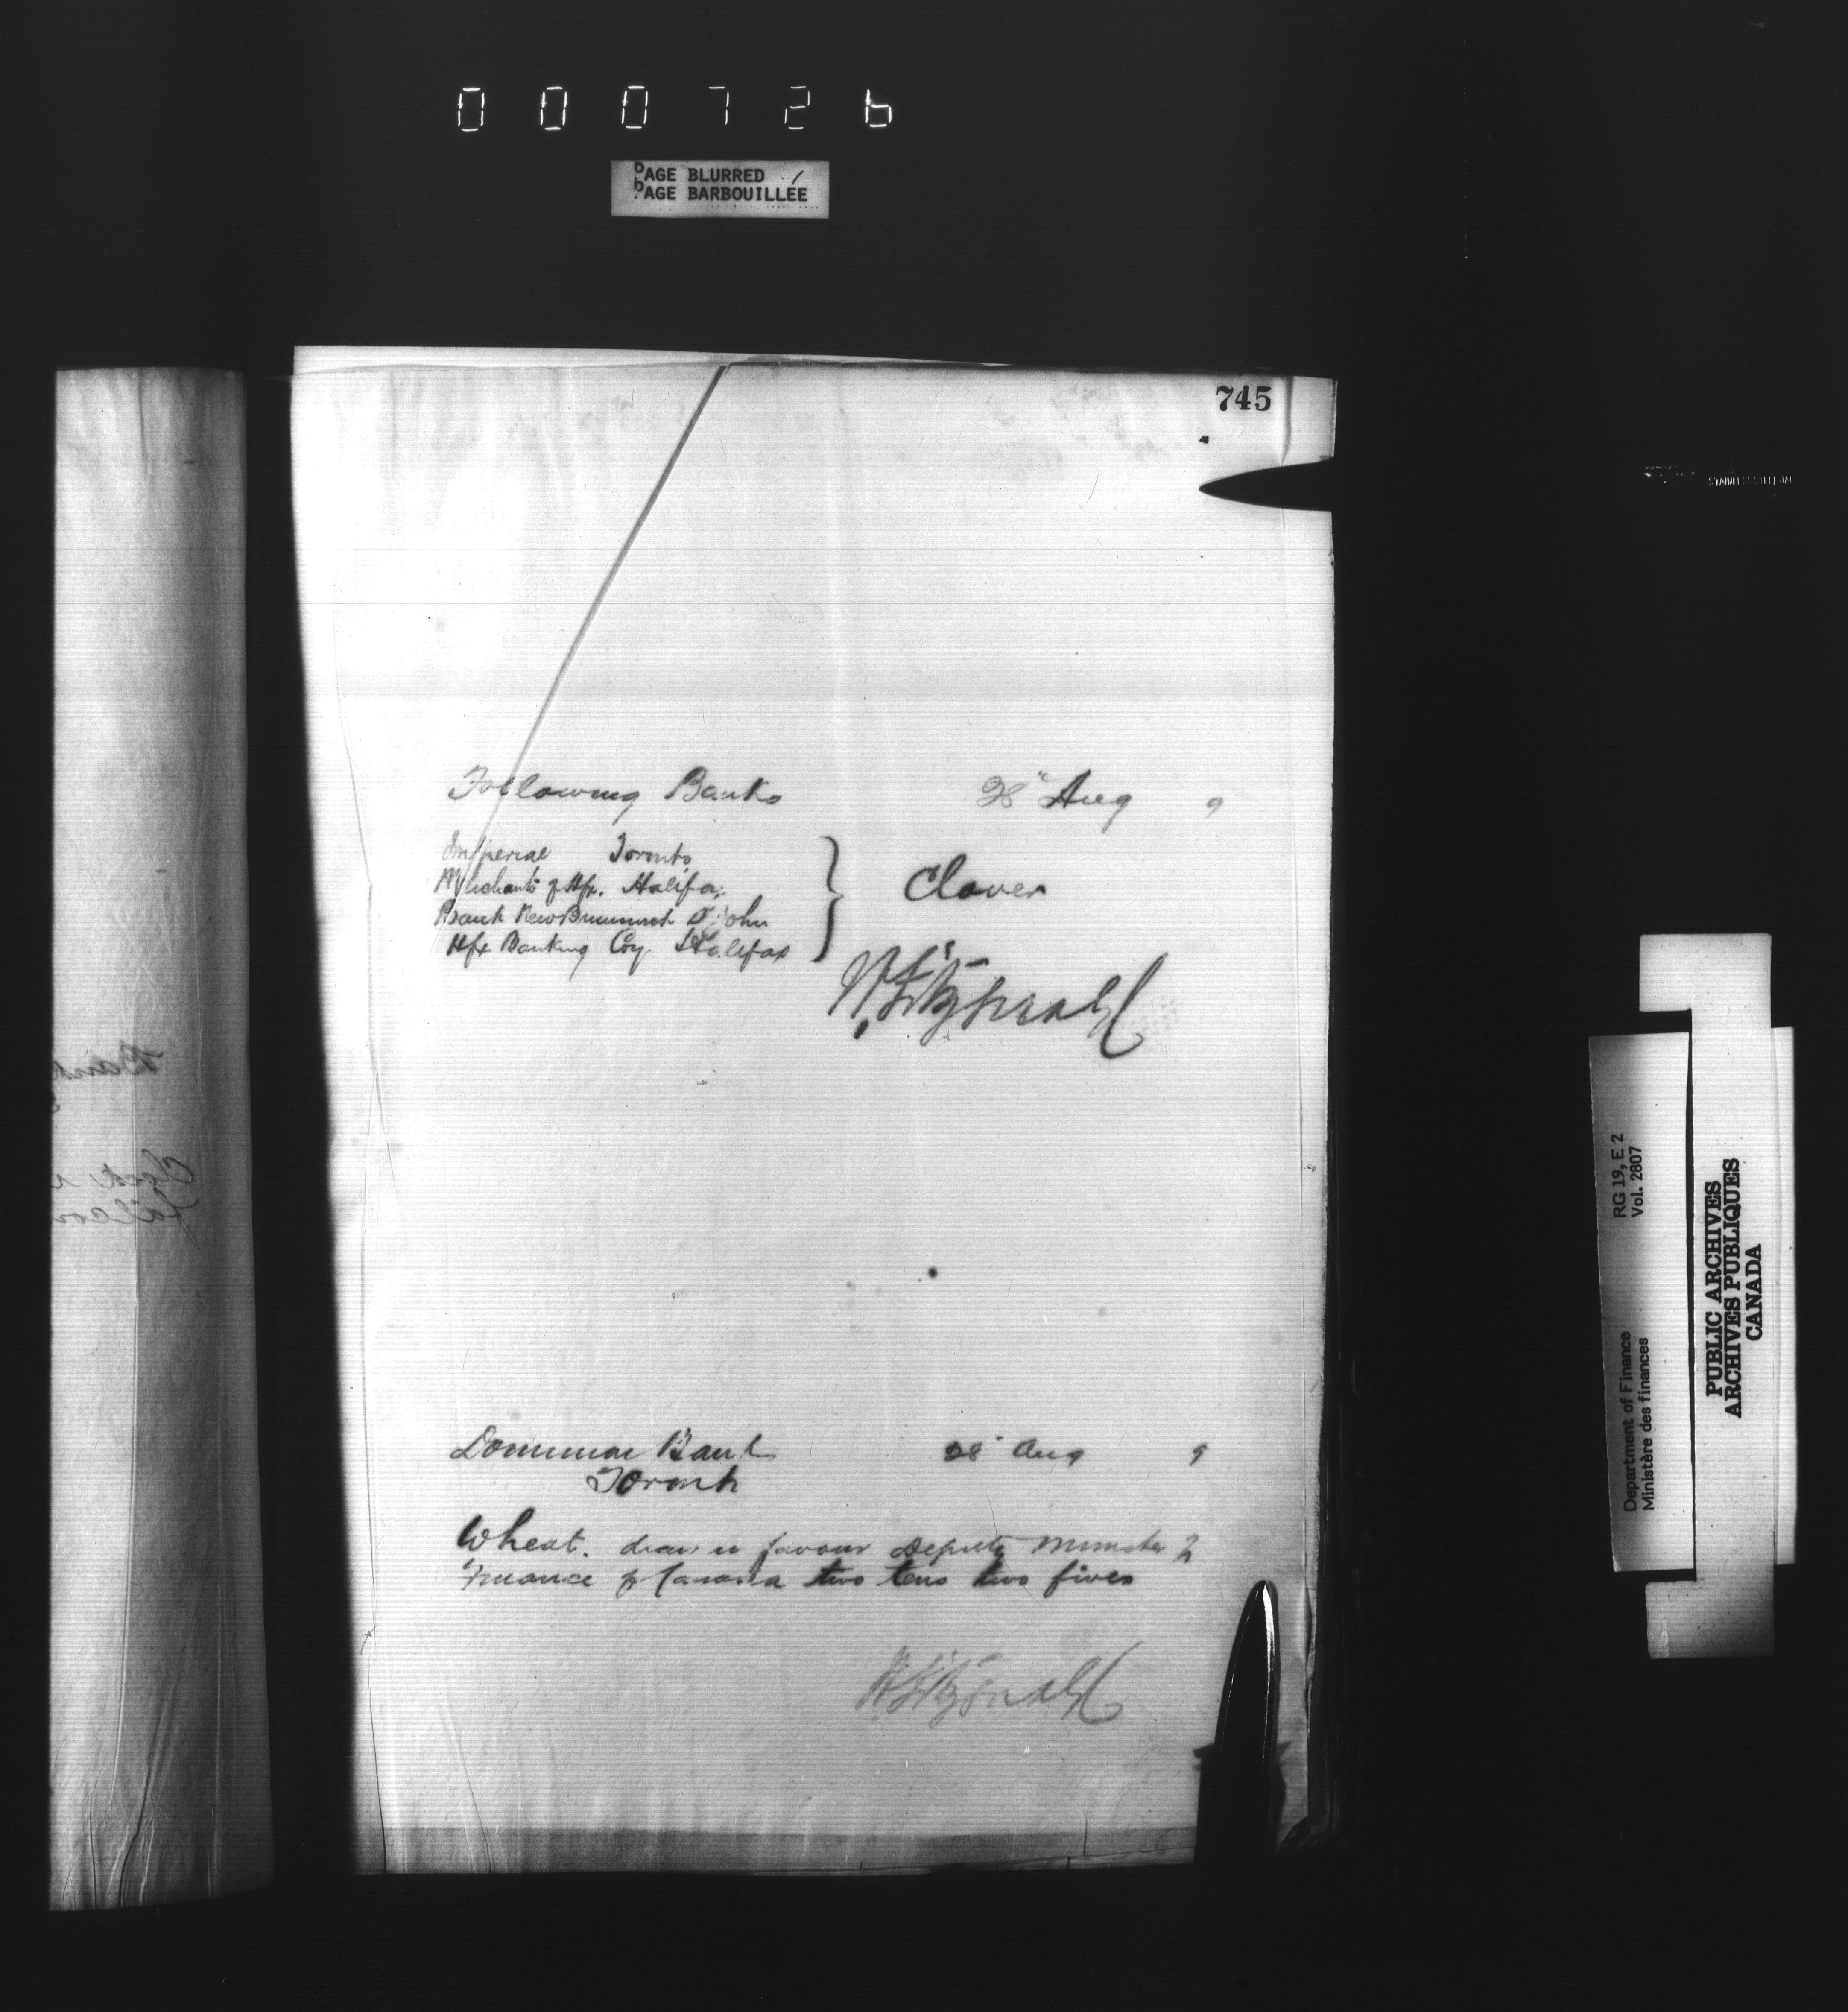 000726
PAGE BLURRED
PAGE BARBOUILLÉE
745
Following Banks 28" Aug 9
Imperial Toronto
Merchants of Hfx. Halifax
Bank New Brunswick St John
Hfx Banking Coy Halifax
Clover
W. Fitzgerald
Dominion Bank 28" Aug 9
Toronto
Wheat. draw in favour Deputy Minister of
Finance of Canada two tens two fives
W. Fitzgerald
RG 19, E 2
Vol. 2807
Department of Finance
Ministère des finances
PUBLIC ARCHIVES
ARCHIVES PUBLIQUES
CANADA